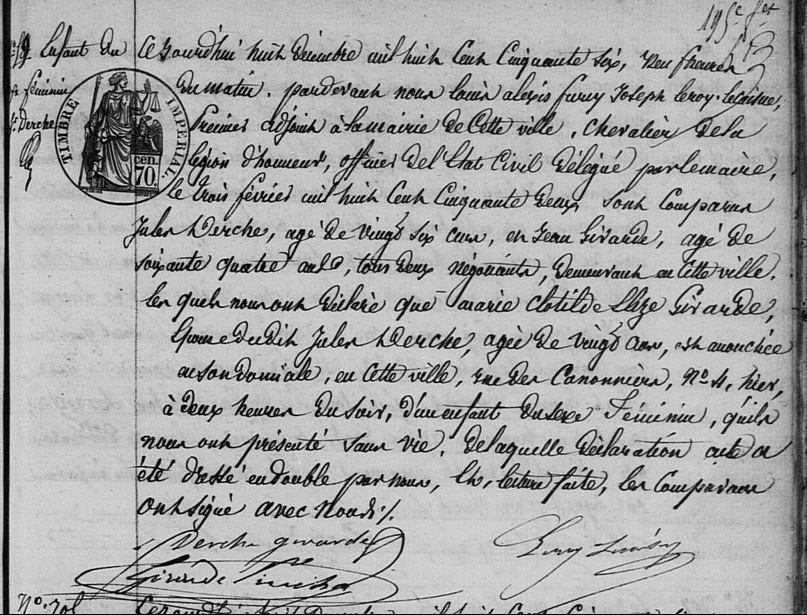 Enfant du
féminin
Derche
TIMBRE IMPÉRIAL
cen. 70.
Ce Jourd'hui huit Décembre mil huit Cent Cinquante Six, Neuf heures
Du matin. pardevant nous Louis alexis furcy Joseph Leroy-
Premier adjoint à la mairie de Cette ville, Chevalier de la
légion d'honneur, officier de l'Etat Civil Délégué par le maire,
le trois février mil huit Cent Cinquante Deux sont Comparus
Jules Derche, agé De vingt six ans, et Jean Girarde, agé de
soixante quatre ans, tous deux négociants, Demeurant en Cette ville.
les quels nous ont Déclaré que marie Clotilde Elize Girarde,
Epouse dudit Jules Derche, agée de vingt ans, est accouchée
en son domicile, en Cette ville, rue des Canonniers, No 4, hier,
à deux heures du soir, d'un enfant du sexe Féminin, qu'ils
nous ont présenté sans vie. De laquelle Déclaration acte a
été dressé en double par nous, Et, lecture faite, les Comparans
Ont signé avec Nous ./.
Derche girarde
Girarde
No. 701